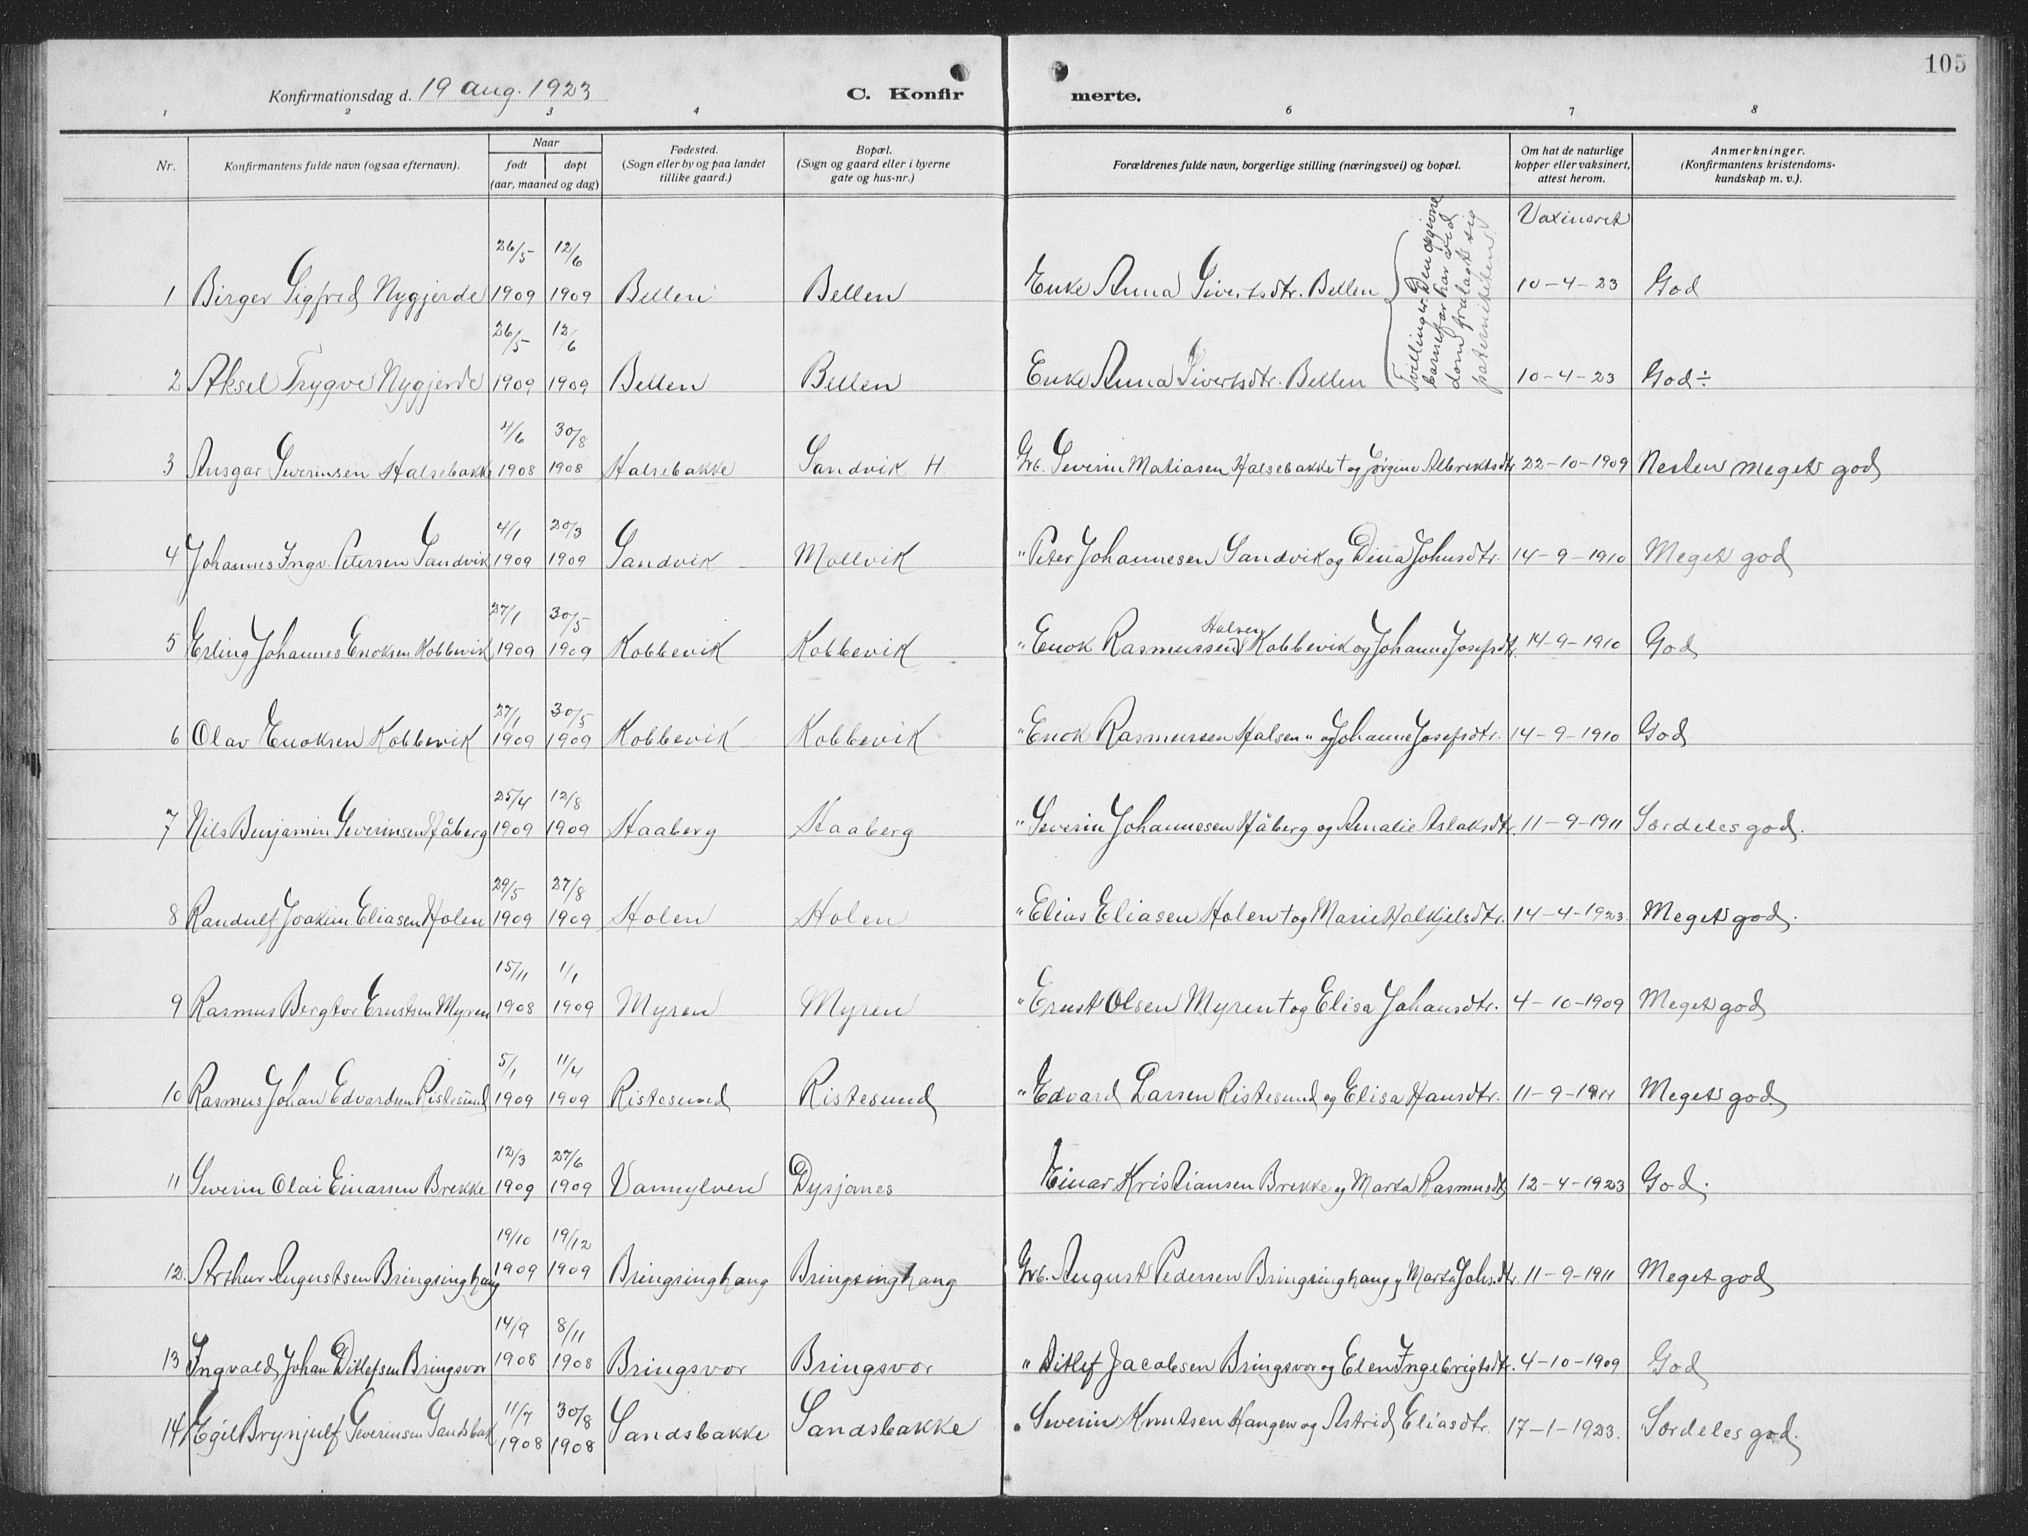 105
Konfirmationsdag d. 19 aug. 1923
C. Konfir merte.
1 2 3 4 5 6 7 8
Nr. Konfirmantens fulde navn (ogsaa efternavn). Naar født døpt (aar, maaned og dag) Fødested. (Sogn eller by og paa landet tillike gaard.) Bopæl. (Sogn og gaard eller i byerne gate og hus-nr.) Forældrenes fulde navn, borgerlige stilling (næringsvei) og bopæl. Om hat de naturlige kopper eller vaksinert, attest herom. Anmerkninger. (Konfirmantens kristendoms-kundskap m. v.).
Vaxineret
26/5 12/6
1 Birger Sigfred Nygjerde 1909 1909 Bellen Bellen Enke Anna Sivertsdtr. Bellen 10-4-23 God
Tvillinger. Den opgivne
barnefar har ved
dom fralagt sig
paterniteten.
26/5 12/6
2 Aksel Trygve Nygjerde 1909 1909 Bellen Bellen Enke Anna Sivertsdtr. Bellen 10-4-23 God÷
4/6 30/8
3 Ansgar Severinsen Halsebakke 1908 1908 Halsebakke Sandvik H. Grb. Severin Matiasen Halsebakke † og Jørgine Albrektsdtr 22-10-1909 Nesten meget god
4/1 20/3
4 Johannes Ingv. Petersen Sandvik 1909 1909 Sandvik Mollvik " Peter Johannesen Sandvik og Dina Johnsdtr. 14-9-1910 Meget god
27/1 30/5
5 Erling Johannes Enoksen Kobbevik 1909 1909 Kobbevik Kobbevik " Enok Rasmussen Halsen Kobbevik og Johanne Josefsdtr. 14-9-1910 God
27/1 30/5
6 Olav Enoksen Kobbevik 1909 1909 Kobbevik Kobbevik " Enok Rasmussen Halsen " og Johanne Josefsdtr. 14-9-1910 God
25/4 12/8
7 Nils Benjamin Severinsen Håberg 1909 1909 Haaberg Haaberg " Severin Johannesen Håberg og Amalie Aslaksdtr. 11-9-1911 Særdeles god.
29/5 27/8
8 Randulf Joakim Eliasen Holen 1909 1909 Holen Holen " Elias Eliasen Holen † og Marie Halkjelsdtr. 14-4-1923. Meget god.
15/11 1/1
9 Rasmus Bergtor Ernstsen Myren 1908 1909 Myren Myren " Ernst Olsen Myren † og Elisa Johansdtr. 4-10-1909 Meget god
5/1 11/4
10 Rasmus Johan Edvardsen Ristesund 1909 1909 Ristesund Ristesund " Edvard Larsen Ristesund og Elisa Hansdtr. 11-9-1911 Meget god.
12/3 27/6
11 Severin Olai Einarsen Brekke 1909 1909 Vannylven Dysjanes Einar Kristiansen Brekke og Marta Rasmusdtr 12-4-1923 God.
19/10 19/12
12. Arthur Augustsen Bringsinghaug 1909 1909 Bringsinghaug Bringsinghaug Grb. August Pedersen Bringsinghaug og Marta Johs.dtr. 11-9-1911 Meget god
14/9 8/11
13 Ingvald Johan Ditlefsen Bringsvor 1908 1908 Bringsvor Bringsvor " Ditlef Jacobsen Bringsvor og Elen Ingebrigtsdtr. 4-10-1909 God
11/7 30/8
14 Egil Brynjulf Severinsen Sandsbak 1908 1908 Sandsbakke Sandsbakke " Severin Knutsen Haugen og Astrid Eliasdtr. 17-1-1923. Særdeles god.